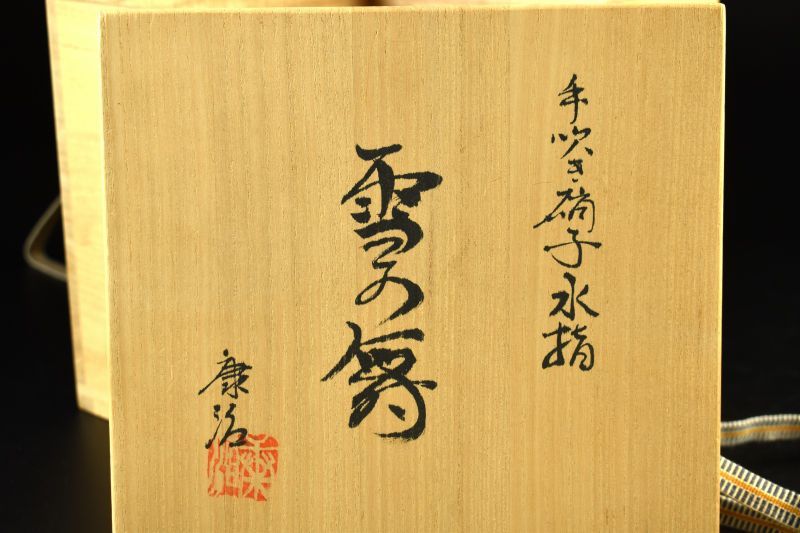 手吹き硝子水指
雪の舞
康治